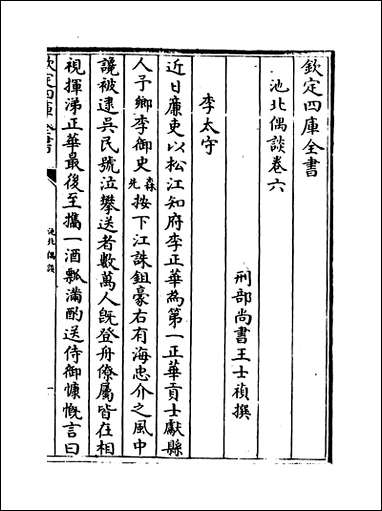 欽定四庫全書
池北偶談卷六
刑部尚書王士禎撰
李太守
近日廉吏以松江知府李正華為第一正華貢士獻縣
人予鄉李御史森先按下江誅鉏豪右有海忠介之風中
讒被逮吳民號泣攀送者數萬人既登舟僚屬皆在相
視揮涕正華最後至攜一酒瓢滿酌送侍御慷慨言曰
欽定四庫全書
池北偶談
一